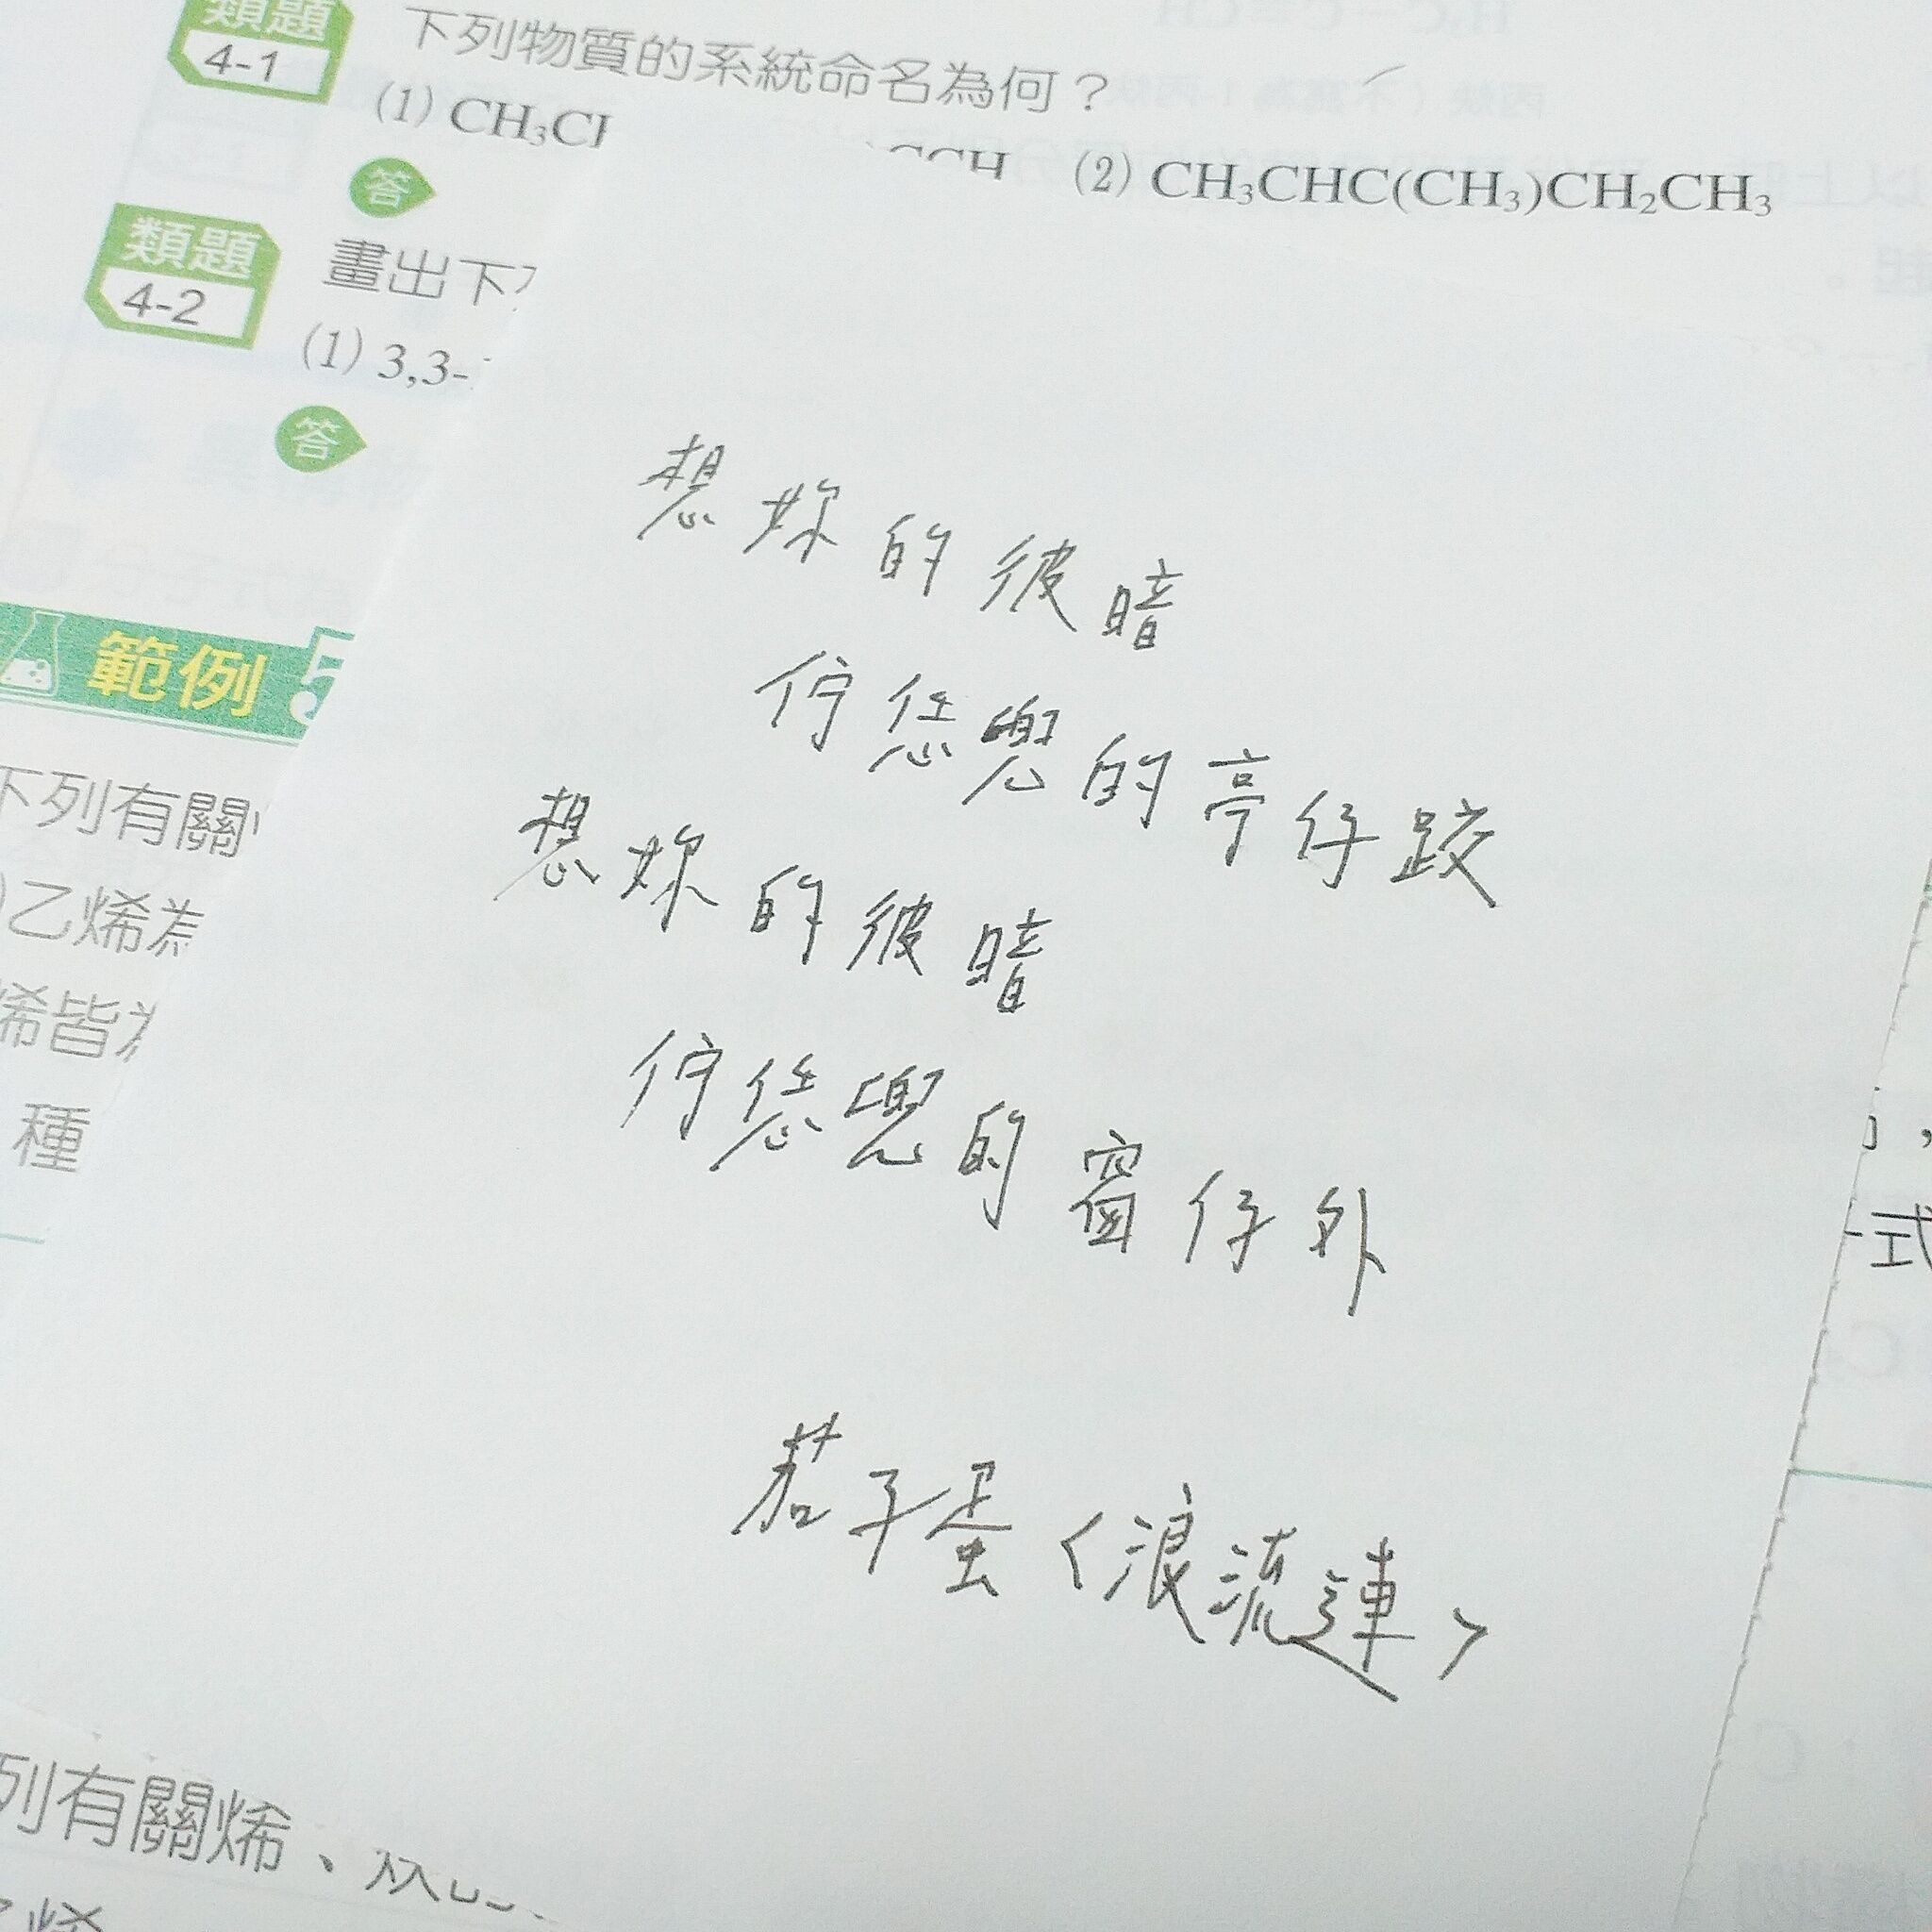 類題
4-1
下列物質的系統命名為何？
(1) CH₃C
CCH (2) CH₃CHC(CH₃)CH₂CH₃
答
類題
4-2
畫出下
(1) 3,3-
答
範例 5
下列有關
)乙烯為
烯皆為
種
想妳的彼暗
佇恁兜的亭仔跤
想妳的彼暗
佇恁兜的窗仔外
茄子蛋〈浪流連〉
式
列有關烯、
乙烯